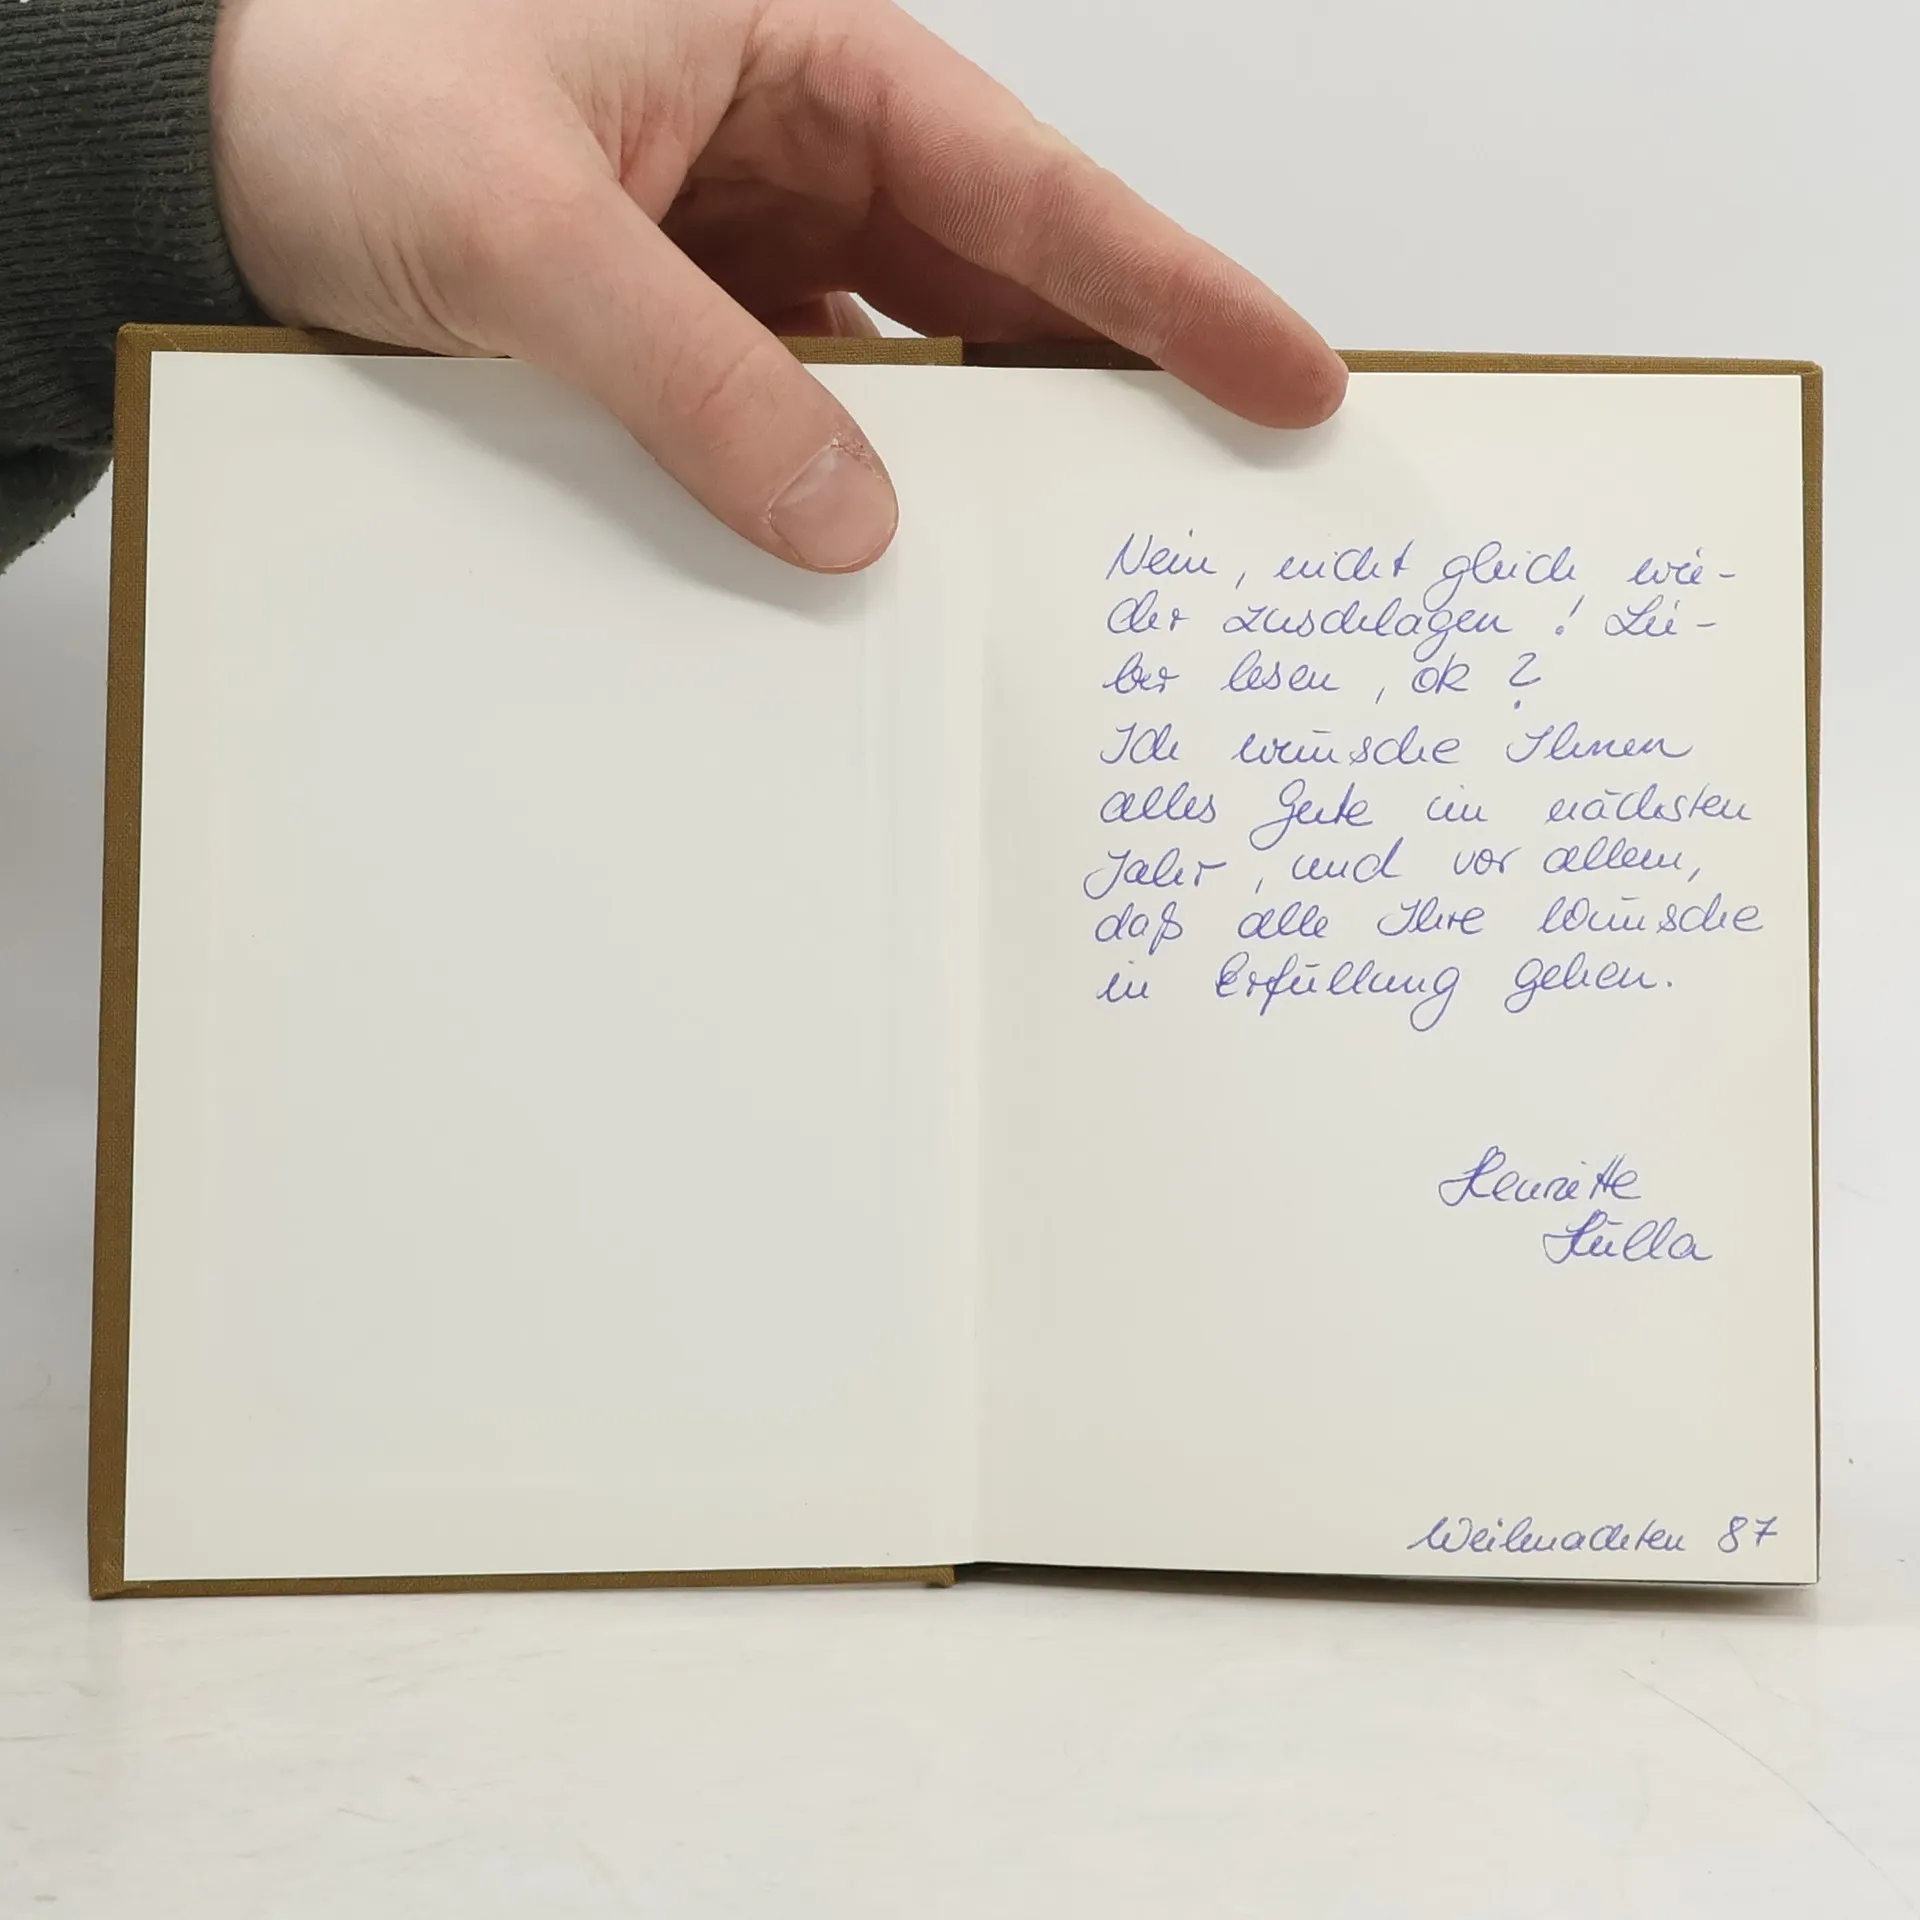 Nein, nicht gleich wie-
der zuschlagen! Lie-
ber lesen, ok?
Ich wünsche Ihnen
alles Gute im nächsten
Jahr, und vor allem,
daß alle Ihre Wünsche
in Erfüllung gehen.
Henriette
Weihnachten 87